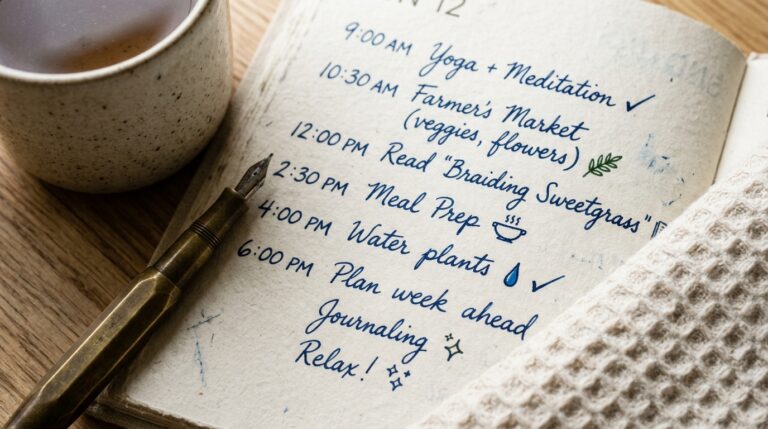 12
9:00 AM Yoga + Meditation ✓
10:30 AM Farmer's Market
(veggies, flowers)
12:00 PM Read "Braiding Sweetgrass"
2:30 PM Meal Prep
4:00 PM Water plants ✓
6:00 PM Plan week ahead
Journaling
Relax!